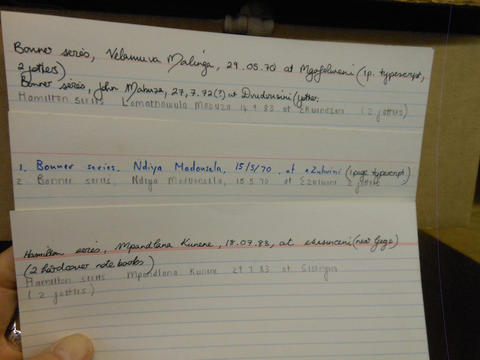 Bonner series, Velamuva Malinga, 29.05.70 at Mgofelweni (1p. typescript,
2 jotters)
Bonner series, John Mabuza, 27,7.72(?) at Dvudvusini (jotter.
Hamilton series Lomathawula Mabuza 14.9.83 at (2 jotters)
1. Bonner series. Ndiya Madonsela, 15/5/70, at eZulwini (1 page typescript)
2. Bonner series, Ndiya Madonsela, 15.5.70 at Ezulwini 2 jotters
Hamilton series, Mpandlana Kunene, 18.07.83, at (near Gege)
(2 hardcover note books)
Hamilton series Mpandlana Kunene 29.7.83 at
(2 jotters)